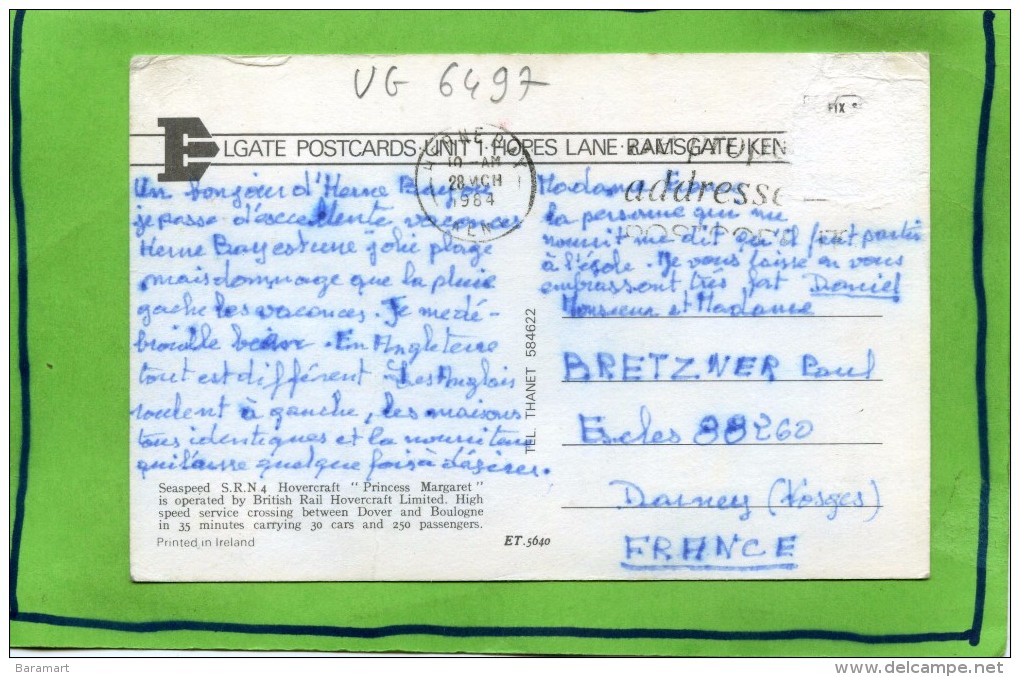 VG 6497
ELGATE POSTCARDS · UNIT 1 · HOPES LANE · RAMSGATE · KEN
HERNE BAY
10 - AM
28 MCH
1984
KENT
addresse
FIX
Un bonjour d'Herne Bay où
je passe d'excellente vacances
Herne Bay est une jolie plage
mais dommage que la pluie
gache les vacances. Je me dé-
brouille bien. En Angleterre
tout est différent. Les Anglais
roulent à gauche, les maisons
tous identiques et la nourriture
qui laisse quelque fois à désirer.
Madame
la personne qui me
nourrit me dit qu'il faut partir
à l'école. Je vous laisse en vous
embrassont très fort Daniel
Monsieur et Madame
BRETZNER Paul
Escles 88260
Darney (Vosges)
FRANCE
TEL. THANET 584622
Seaspeed S.R.N4 Hovercraft " Princess Margaret "
is operated by British Rail Hovercraft Limited. High
speed service crossing between Dover and Boulogne
in 35 minutes carrying 30 cars and 250 passengers.
Printed in Ireland
ET.5640
Baramart
www.delcampe.net